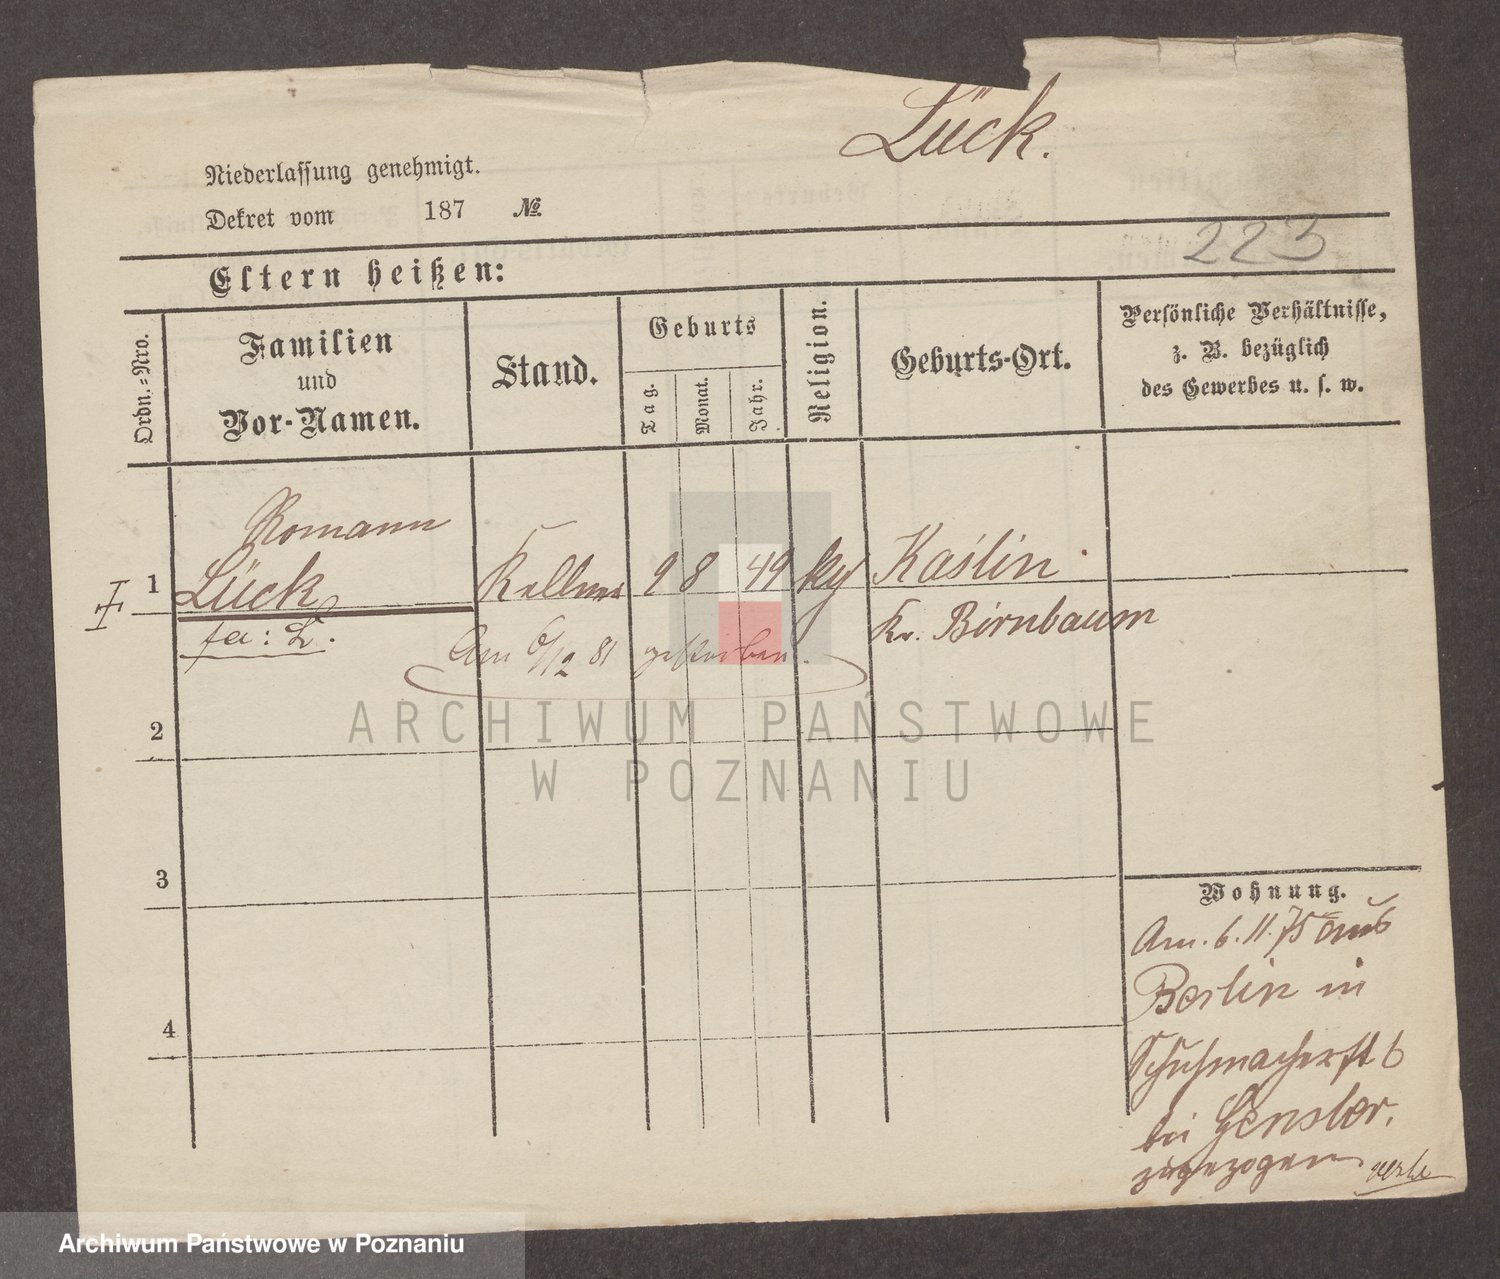 Lück.
Niederlassung genehmigt.
Dekret vom 187 №
223
Eltern heißen:
Ordn.=Nro.
Familien
und
Vor-Namen.
Stand.
Geburts
Tag.
Monat.
Jahr.
Religion.
Geburts-Ort.
Persönliche Verhältnisse,
z. B. bezüglich
des Gewerbes u. s. w.
Romann
1 Lück Kellner 9 8 49 Kaslin
Kr. Birnbaum
fa: L.
Am 6/12 81 gestorben.
2
3
4
Wohnung.
Am. 6. 11. 75 aus
Berlin in
Schuhmacherst 6
bei Gensler.
zugezogen
ARCHIWUM PAŃSTWOWE
W POZNANIU
Archiwum Państwowe w Poznaniu